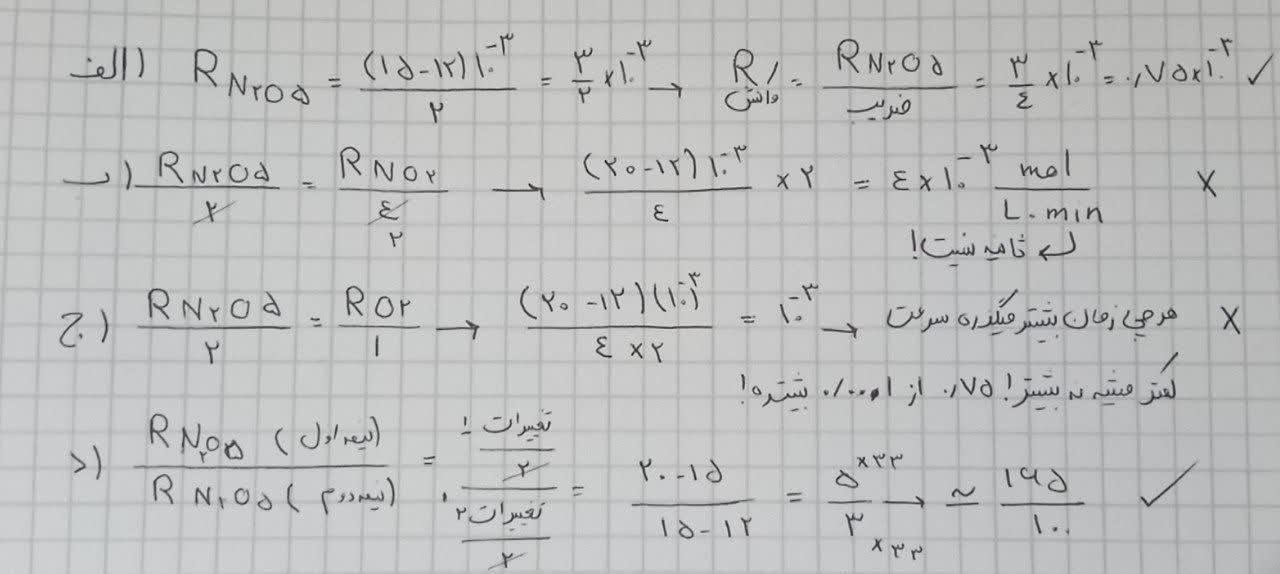 الف) R N۲O۵ = (۱۵-۱۲)۱۰^-۳ / ۲ = ۳/۲ × ۱۰^-۳ → R واکنش = R N۲O۵ / ضریب = ۳/۴ × ۱۰^-۳ = ۰/۷۵ × ۱۰^-۳ ✓
ب) R N۲O۵ / ۲ = R NO۲ / ۴ ۲ → (۲۰-۱۲)۱۰^-۳ / ۴ × ۲ = ۴ × ۱۰^-۳ mol / L.min ×
↳ ثانیه نیست!
ج) R N۲O۵ / ۲ = R O۲ / ۱ → (۲۰-۱۲)(۱۰^-۳) / ۴×۲ = ۱۰^-۳ → هرچی زمان بیشتر میگذره سرعت ×
کمتر میشه نه بیشتر! ۰/۷۵ از ۰/۰۰۰۱ بیشتره!
د) R N۲O۵ (نیمه اول) / R N۲O۵ (نیمه دوم) = تغییرات ۱ / ۲ / تغییرات ۲ / ۲ = ۲۰-۱۵ / ۱۵-۱۲ = ۵ ×۳۳ / ۳ ×۳۳ → ≃ ۱۶۵ / ۱۰۰ ✓